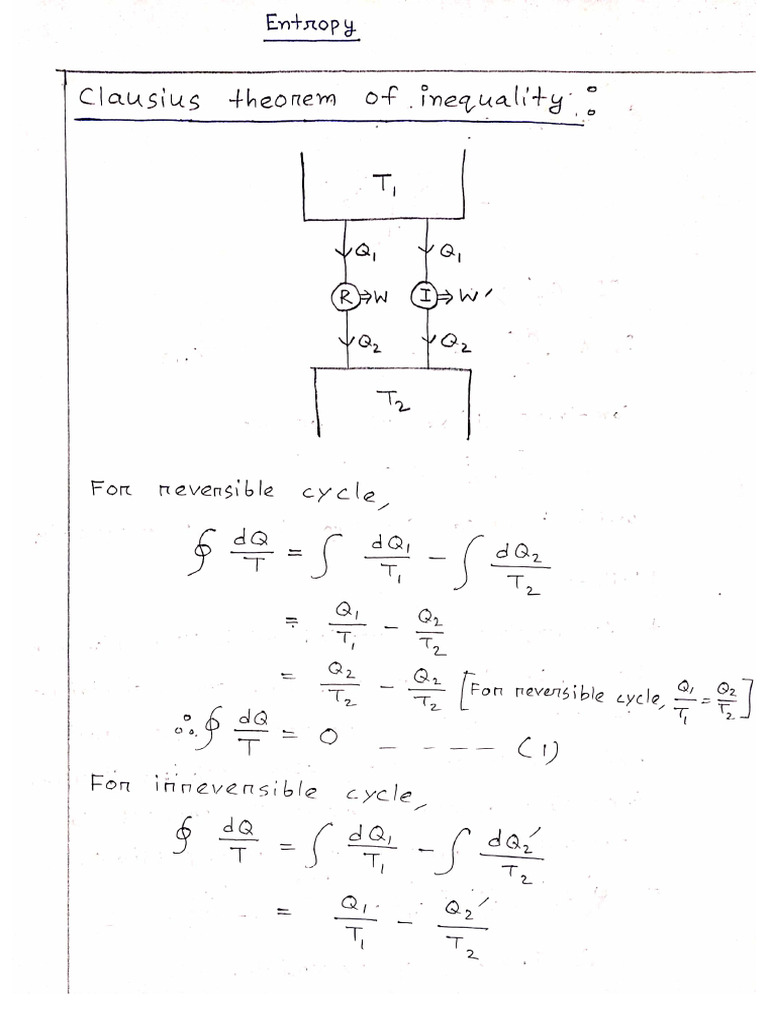 Entropy
Clausius theorem of inequality :
T₁
Q₁ Q₁
R ⇒ W I ⇒ W′
Q₂ Q₂
T₂
For reversible cycle,
∮ dQ/T = ∫ dQ₁/T₁ − ∫ dQ₂/T₂
= Q₁/T₁ − Q₂/T₂
= Q₂/T₂ − Q₂/T₂ [For reversible cycle, Q₁/T₁ = Q₂/T₂]
∴ ∮ dQ/T = 0 − − − − − (1)
For irreversible cycle,
∮ dQ/T = ∫ dQ₁/T₁ − ∫ dQ₂′/T₂
= Q₁/T₁ − Q₂′/T₂